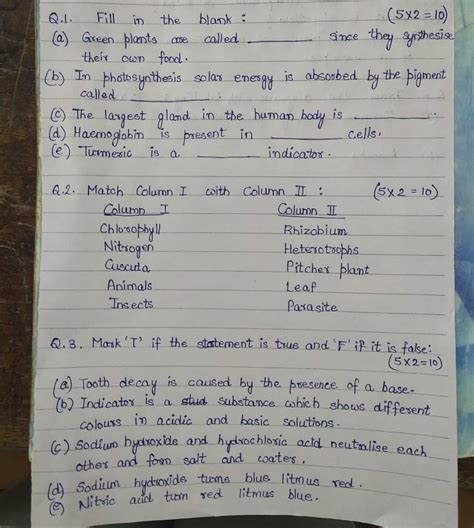 Q.1. Fill in the blank : (5x2=10)
(a) Green plants are called ________ since they synthesise
their own food.
(b) In photosynthesis solar energy is absorbed by the pigment
called ________.
(c) The largest gland in the human body is ________.
(d) Haemoglobin is present in ________ cells.
(e) Turmeric is a ________ indicator.
Q.2. Match Column I with Column II : (5x2=10)
Column I Column II
Chlorophyll Rhizobium
Nitrogen Heterotrophs
Cuscuta Pitcher plant
Animals Leaf
Insects Parasite
Q.3. Mark 'T' if the statement is true and 'F' if it is false:
(5x2=10)
(a) Tooth decay is caused by the presence of a base.
(b) Indicator is a substance which shows different
colours in acidic and basic solutions.
(c) Sodium hydroxide and hydrochloric acid neutralise each
other and form salt and water.
(d) Sodium hydroxide turns blue litmus red.
(e) Nitric acid turn red litmus blue.